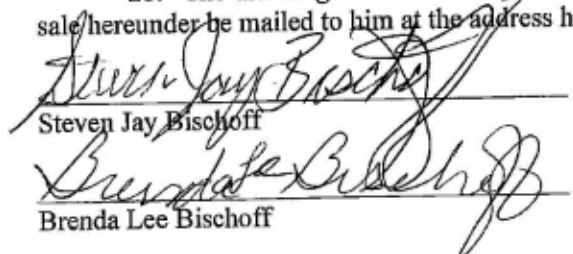 sale hereunder be mailed to him at the address h
Steven Jay Bischoff
Steven Jay Bischoff
Brenda Lee Bischoff
Brenda Lee Bischoff